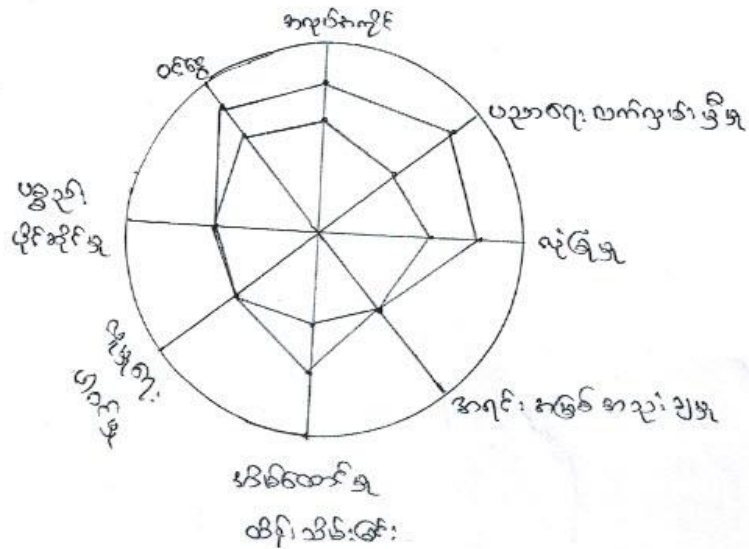 အလုပ်အကိုင်
ပညာရေး လက်လှမ်းမှီမှု
လုံခြုံမှု
အရင်းအမြစ် အသုံးချမှု
အိမ်ထောင်မှု
ထိန်းသိမ်းခြင်း
လူမှုရေး
ပိုင်ဆိုင်မှု
ဝင်ငွေ